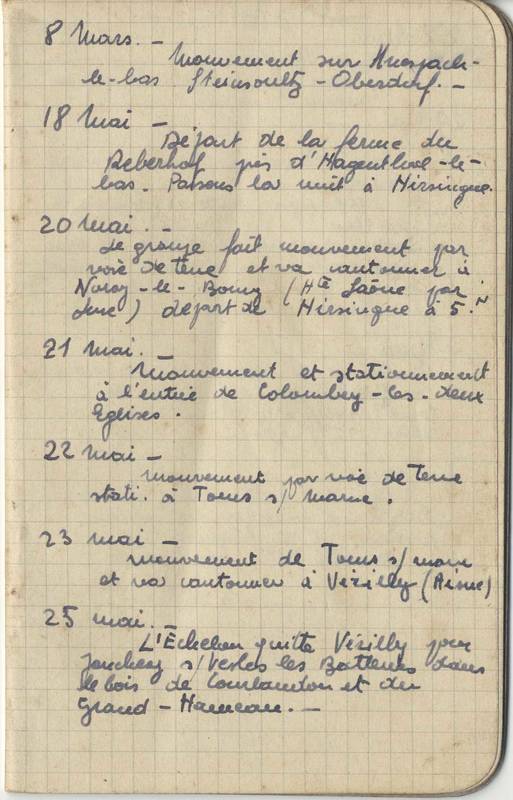 8 Mars. -
Mouvement sur Muespach-
le-bas Steinsoultz - Oberdorf. -
18 Mai -
Départ de la ferme du
Beberhof près d'Hagenthal-le-
bas. Passons la nuit à Hirsingue.
20 Mai. -
Le groupe fait mouvement par
voie de terre et va cantonner à
Noroy-le-Bourg (Hte Saône par
) départ de Hirsingue à 5.H
21 Mai. -
Mouvement et stationnement
à l'entrée de Colombey-les-deux
Eglises.
22 Mai -
Mouvement par voie de terre
stati. à Tours s/ Marne.
23 Mai -
Mouvement de Tours s/ Marne
et va cantonner à Vézilly (Aisne)
25 Mai. -
L'Echelon quitte Vézilly pour
Jonchery s/ Vesles les Batteries dans
le bois de et du
Grand-Hameau. -